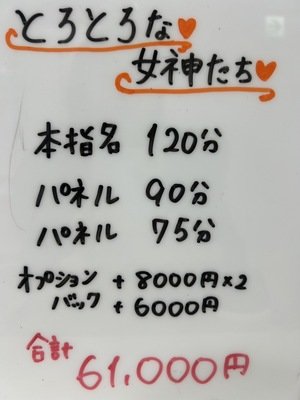 とろとろな♥
女神たち♥
本指名 120分
パネル 90分
パネル 75分
オプション + 8000円×2
バック + 6000円
合計
61,000円